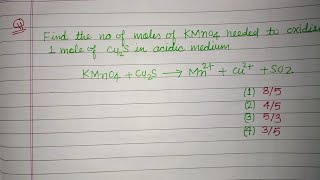 Q Find the no of moles of KMnO4 needed to oxidise
1 mole of Cu2S in acidic medium
KMnO4 + Cu2S → Mn2+ + Cu2+ + SO2
(1) 8/5
(2) 4/5
(3) 5/3
(4) 3/5